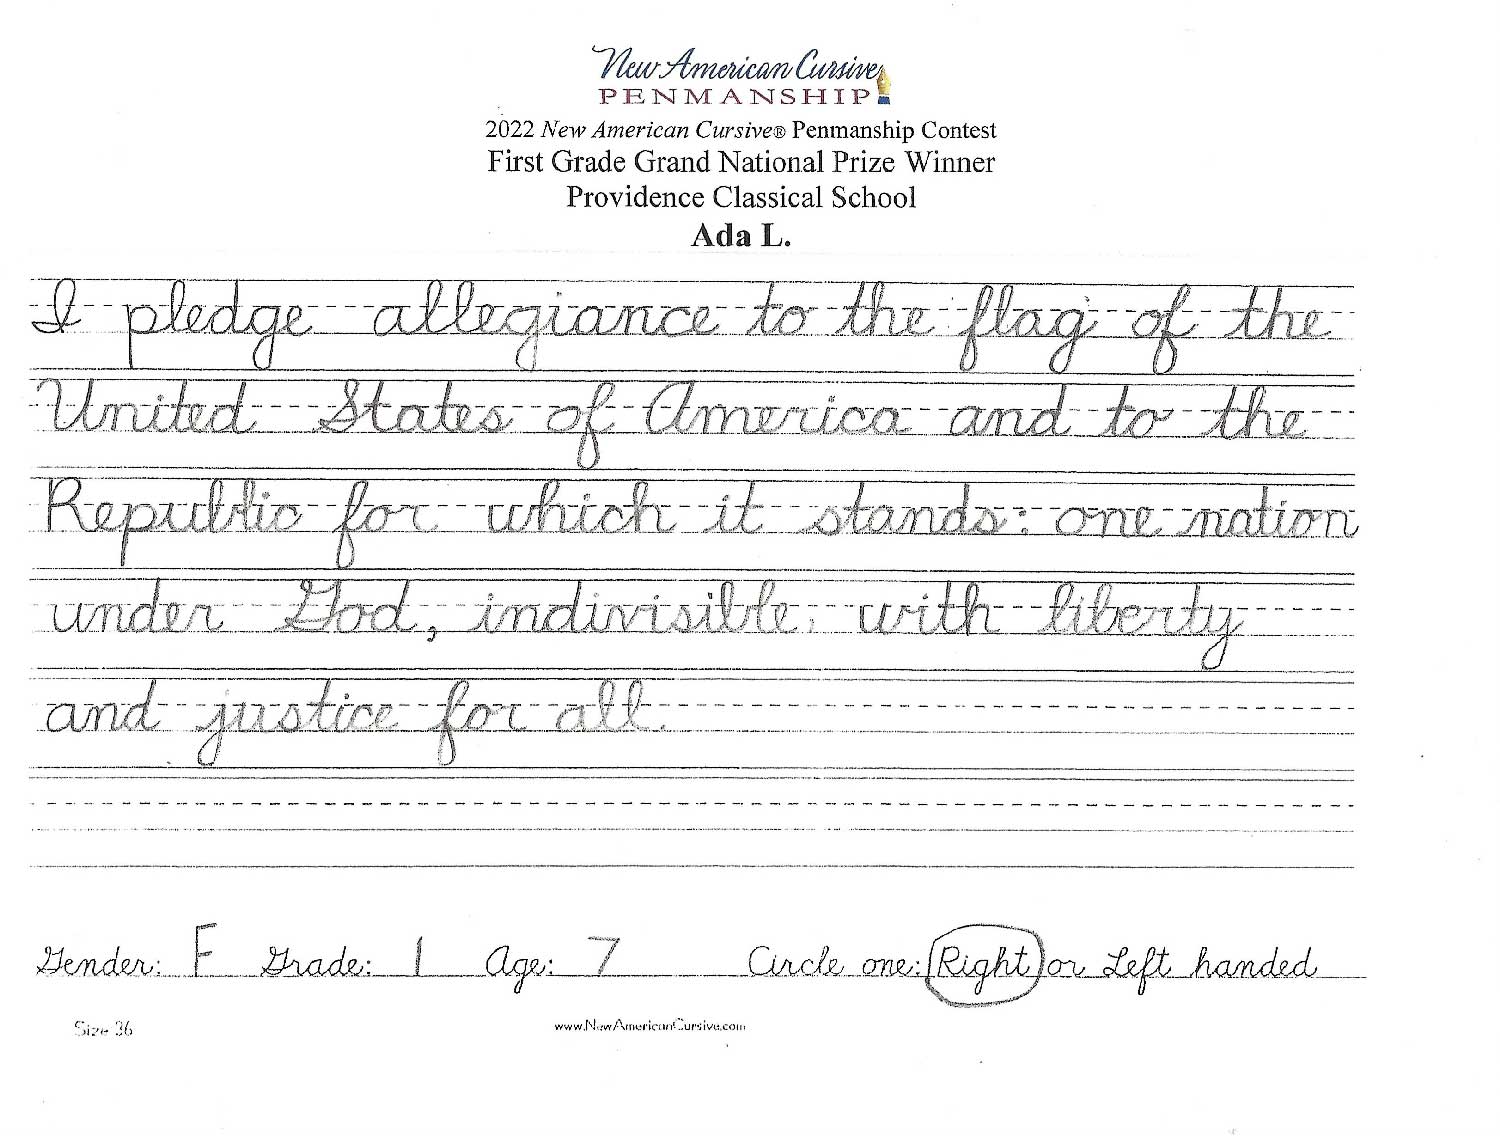 New American Cursive
PENMANSHIP
2022 New American Cursive® Penmanship Contest
First Grade Grand National Prize Winner
Providence Classical School
Ada L.
I pledge allegiance to the flag of the
United States of America and to the
Republic for which it stands: one nation
under God, indivisible, with liberty
and justice for all.
Gender: F Grade: 1 Age: 7 Circle one: Right or Left handed
Size 36
www.NewAmericanCursive.com